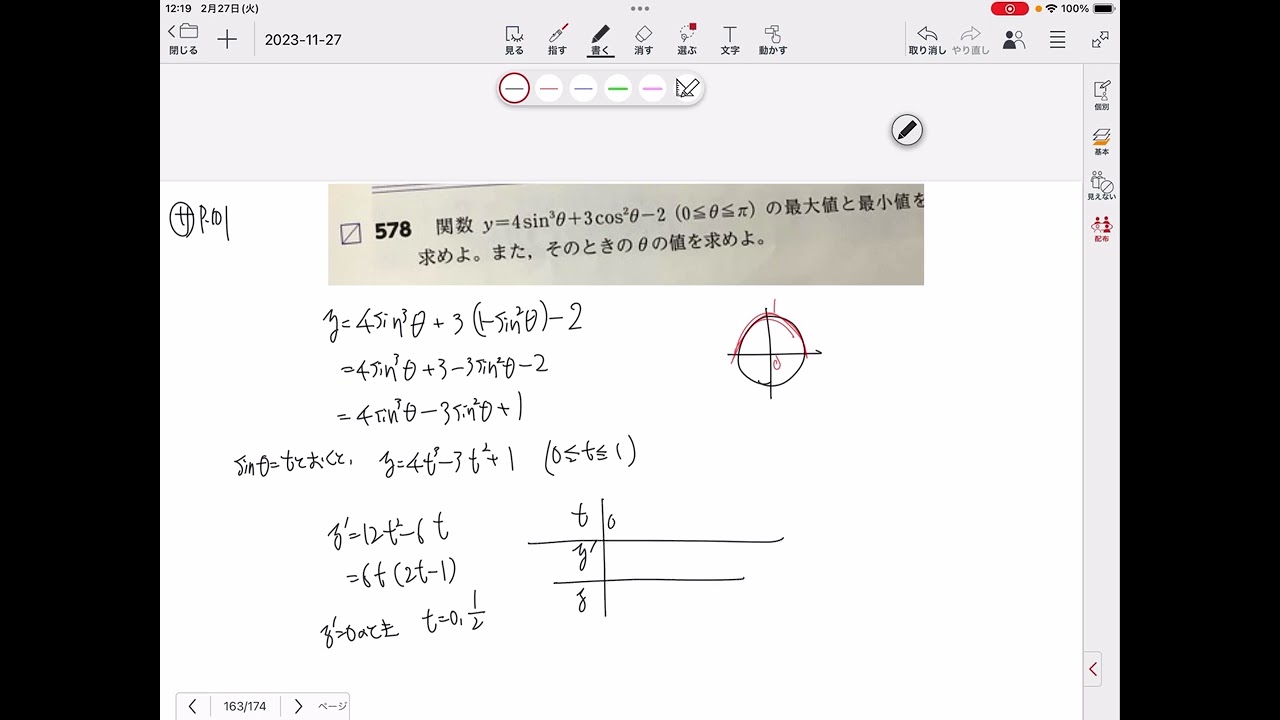 12:19 2月27日(火)
100%
閉じる
2023-11-27
見る 指す 書く 消す 選ぶ 文字 動かす
取り消し やり直し
個別
基本
見えない
配布
サ P.101
578 関数 y=4sin³θ+3cos²θ−2 (0≦θ≦π) の最大値と最小値を
求めよ。また，そのときのθの値を求めよ。
y=4sin³θ+3(1-sin²θ)-2
=4sin³θ+3-3sin²θ-2
=4sin³θ-3sin²θ+1
1
0
sinθ=tとおくと, y=4t³-3t²+1 (0≦t≦1)
y'=12t²-6t
=6t(2t-1)
y'=0のとき t=0, 1/2
t 0
y'
y
163/174 ページ